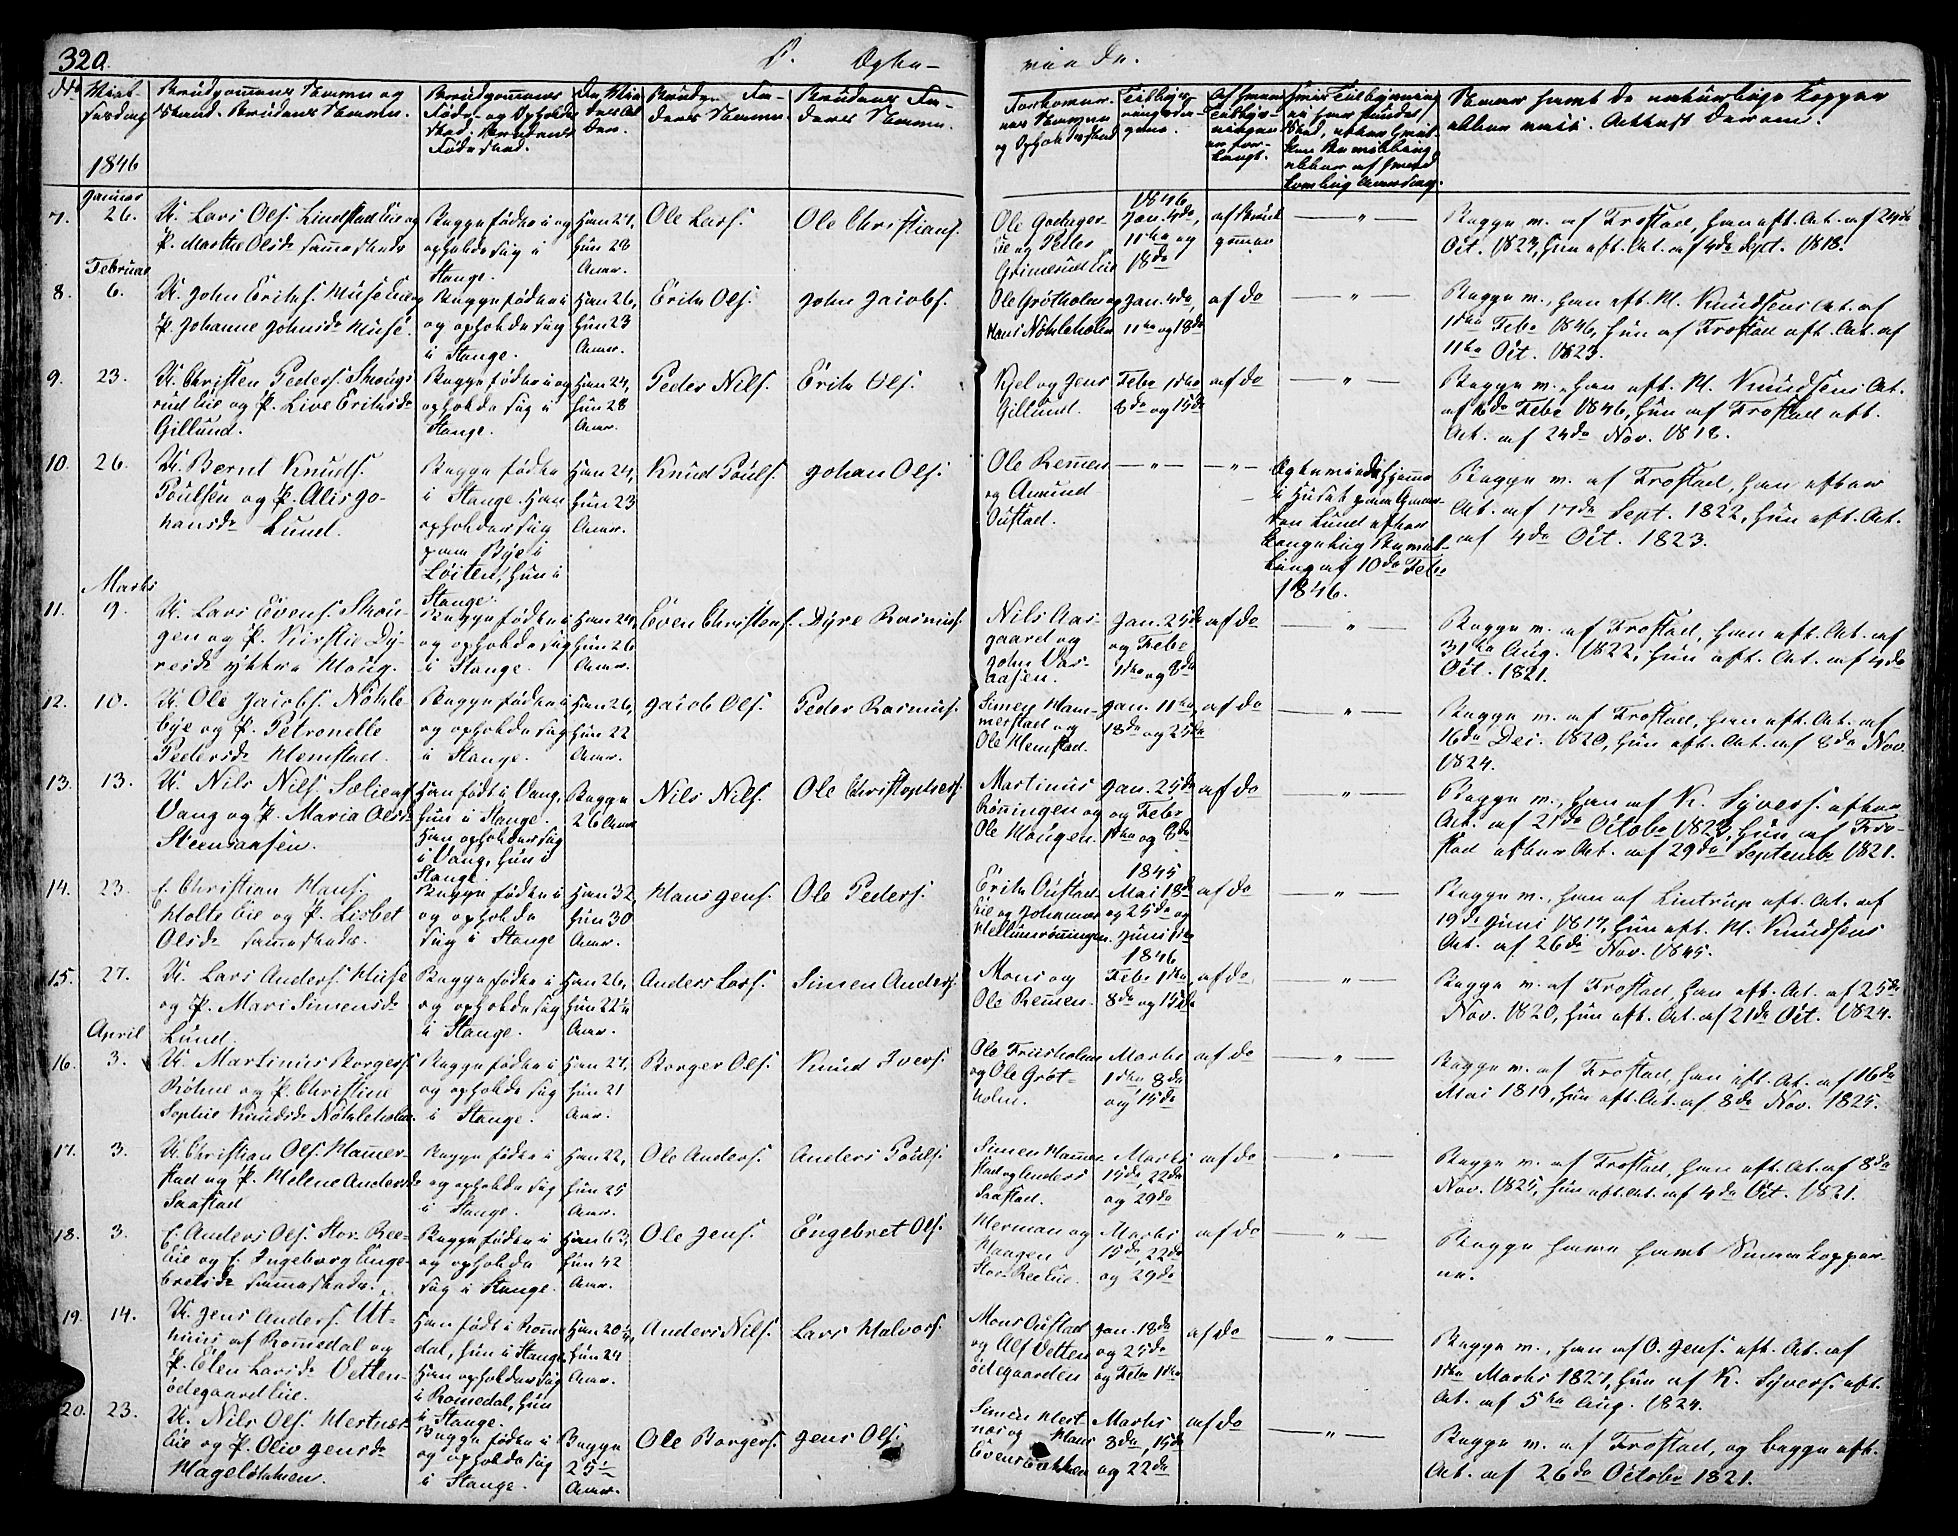 320.
F. Ægte-
viede.
No
Viel-
sesdag
1846
Brudgommens Navn og
Stand. Brudens Navn.
Brudgommens
Føde- og Opholds-
sted, Brudens
Fødested.
De Vie-
des Al-
der.
Brudg. Fa-
ders Navn.
Brudens Fa-
ders Navn.
Forlover-
nes Navn
og Opholdssted
Naar havt de naturlige Kopper
eller vacc. Attest derom.
Januar
7.
26.
U. Lars Ols. Lindstad Eie og
P. Marthe Olsdr sammesteds
Begge fødte i og
opholde sig i
Stange.
Han 27,
hun 28
Aar.
Ole Lars.
Ole Christians.
Ole Godager
Eie og Peder
Grimerud Eie
1846
Jan. 4de,
11te og
18de
af Brud-
gommen
— " —
Begge v. af Frostad, han eft. At. af 24de
Oct. 1823, hun eft. At. af 4de Sept. 1818.
Februar
8.
6.
U. John Eriks. Huse Eie og
P. Johanne Johnsdr Huse.
Begge fødte i
og opholde sig
i Stange.
Han 26,
hun 23
Aar.
Erik Ols.
John Jacobs.
Ole Grøtholm og
Hans Nøkleholm
Jan. 4de
11te og 18de
af do
— " —
Begge v., han eft. M. Knudsens At. af
1ste Febr 1846, hun af Frostad eft. At. af
11te Oct. 1823.
9.
23.
U. Christen Peders. Skougs-
rud Eie og P. Live Eriksdr
Gillund.
Begge fødte i og
opholde sig i
Stange.
Han 24,
hun 28
Aar.
Peder Nils.
Erik Ols.
Kjel og Jens
Gillund.
Febr 1ste
8de og 15de
af do
— " —
Begge v., han eft. M. Knudsens At.
af 6de Febr 1846, hun af Frostad eft.
At. af 24de Nov. 1818.
10.
26.
U. Bernt Knuds.
Poulsen og P. Alis Jo-
hansdr Lund.
Begge fødte
i Stange. Han
opholder sig
paa Bye i
Løiten, hun i
Stange.
Han 24,
hun 23
Aar.
Knud Pouls.
Johan Ols.
Ole Remen
og Amund
Oustad.
— " —
— " —
Ægteviede hjemme
i Huset paa Gaar-
den Lund efter
kongelig Bevil-
ling af 10de Febr
1846.
Begge v. af Frostad, han efter
At. af 17de Sept. 1822, hun eft. At.
af 4de Oct. 1823.
Marts
11.
9.
U. Lars Evens. Skou-
gen og P. Kirstie Dy-
resdr Houg.
Begge fødte i
og opholde sig
i Stange.
Han 24,
hun 26
Aar.
Even Christens.
Dyre Rasmus.
Nils Aas-
gaard og
John
Jan. 25de
og Febr
1ste og 8de
af do
— " —
Begge v. af Frostad, han eft. At. af
31te Aug. 1822, hun eft. At. af 4de
Oct. 1821.
12.
10.
U. Ole Jacobs. Nøkle-
bye og P. Petronelle
Pedersdr Hemstad.
Begge fødte i
og opholde sig
i Stange.
Han 26,
hun 22
Aar.
Jacob Ols.
Peder Rasmus.
Simen Ham-
merstad og
Ole Hemstad.
Jan. 11te
18de og 25de
af do
— " —
Begge v. af Frostad, han eft. At. af
16de Dec. 1820, hun eft. At. af 8de Nov.
1824.
13.
13.
U. Nils Nils. Sælie af
Vang og P. Maria Olsdr
Steenaasen.
Han født i Vang,
hun i Stange.
Han opholder sig
i Vang, hun i
Stange.
Begge
26 Aar
Nils Nils.
Ole Christophers.
Martinus
Rønningen og
Ole Hougen.
Jan. 25de
og Febr
1ste og 8de
af do
— " —
Begge v., han af K. Syvers. efter
At. af 21de Octobr 1823, hun af Fro-
stad efter At. af 29de Septembr 1821.
14.
23.
E. Christian Hans.
Holte Eie og P. Lisbet
Olsdr sammesteds.
Begge fødte i
og opholde
sig i Stange
Han 32,
hun 30
Aar.
Hans Jens.
Ole Peders.
Erik Oustad
Eie og Johannes
Hellumrønningen.
1845
Mai 18de
og 25de og
Juni 1ste
af do
— " —
Begge v., han af Lintrup eft. At. af
19de Juni 1817, hun eft. M. Knudsens
At. af 26de Nov. 1845.
15.
27.
U. Lars Anders. Huse
og P. Mari Simensdr
Lund.
Begge fødte i
og opholde sig
i Stange.
Han 26,
hun 22½
Aar.
Anders Lars.
Simen Anders.
Mons og
Ole Remen.
1846
Febr 1ste
8de og 15de
af do
— " —
Begge v. af Frostad, han eft. At. af 25de
Nov. 1820, hun eft. At. af 21de Oct. 1824.
April
16.
3.
U. Martinus Borgers.
Røhne og P. Christine
Sophie Knudsdr Nøkleholm.
Begge fødte i
og opholde sig
i Stange.
Han 27,
hun 21
Aar.
Borger Ols.
Knud Ivers.
Ole Friisholm
og Ole Grøt-
holm.
Marts
1ste 8de
og 15de
af do
— " —
Begge v. af Frostad, han eft. At. af 16de
Mai 1819, hun eft. At. af 8de Nov. 1825.
17.
3.
U. Christian Ols. Hamer-
stad og P. Helene Andersdr
Saastad
Begge fødte i
og opholde sig
i Stange.
Han 22,
hun 25
Aar.
Ole Anders.
Anders Pouls.
Simen Hamer-
stad og Anders
Saastad.
Marts
15de, 22de
og 29de
af do
— " —
Begge v. af Frostad, han eft. At. af 8de
Nov. 1825, hun eft. At. af 4de Oct. 1821.
18.
3.
E. Anders Ols. Stor-Ree-
Eie og E. Ingeborg Enge-
bretsdr sammesteds.
Begge fødte i
og opholde
sig i Stange.
Han 63,
hun 42
Aar.
Ole Jens.
Engebret Ols.
Herman og
Haagen
Stor-Ree Eie.
Marts
15de, 22de
og 29de
af do
— " —
Begge have havt Børnekopper-
ne.
19.
14.
U. Jens Anders. Ut-
huus af Romedal og
P. Elen Larsdr Vetten-
ødegaard Eie.
Han født i Rome-
dal, hun i Stange.
Han opholder sig
i Romedal, hun
i Stange.
Han 20¼
hun 24
Aar.
Anders Nils.
Lars Halvors.
Mons Oustad
og Alf Vetten-
ødegaarden
Jan. 18de
og 25de
og Febr 1ste
af do
— " —
Begge v., han af O. Jens. eft. At. af
1ste Marts 1827, hun af K. Syvers. eft.
At. af 5te Aug. 1824.
20.
23.
U. Nils Ols. Hertnæs
Eie og P. Oliv Jensdr
Hageløkken.
Begge fødte i
og opholde sig
i Stange.
Begge
25½
Aar.
Ole Borgers.
Jens Ols.
Simen Hert-
næs og Hans
Evensbakken
Marts
8de, 15de
og 22de
af do
— " —
Begge v. af Frostad, og begge eft.
At. af 26de Octobr 1821.